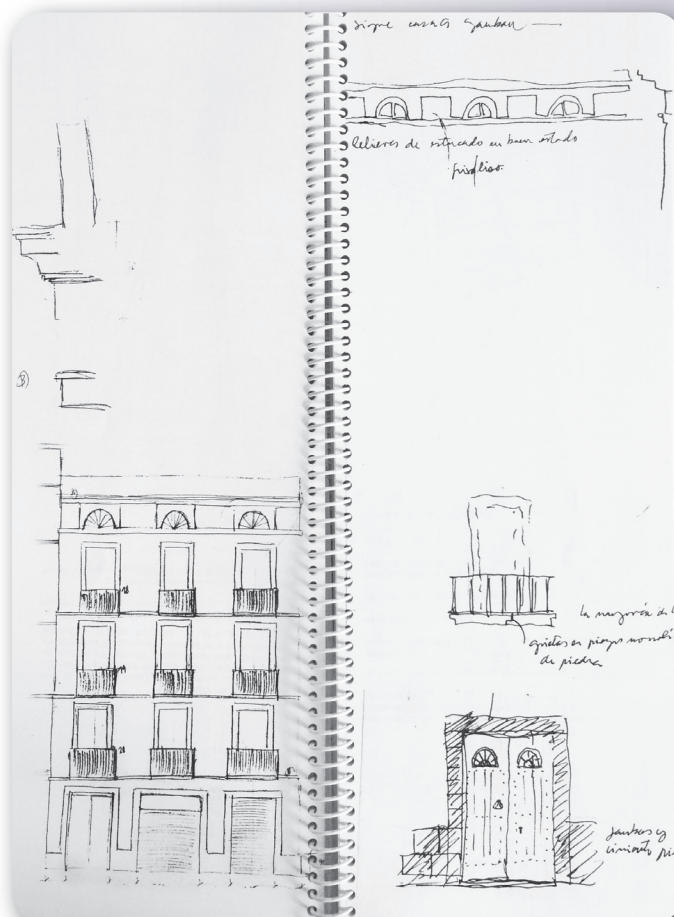 B)
sigue casa G
relieves de estucado en buen estado
friso liso.
la mayoría de l
grietas en piezas monolí
de piedra
jambas y
cimiento pi